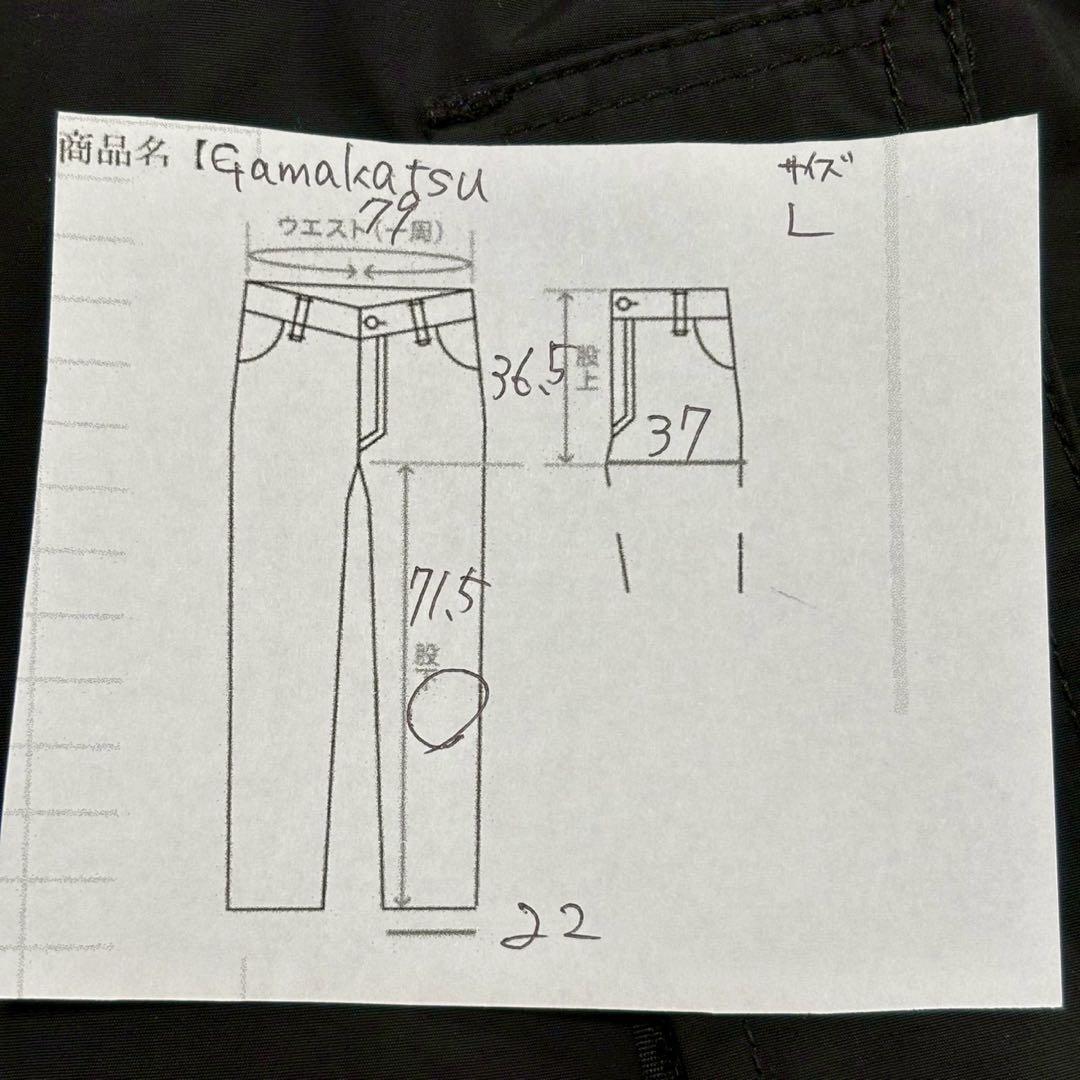 商品名【Gamakatsu
サイズ
L
79
ウエスト(一周)
36.5
股上
37
71.5
股下
22